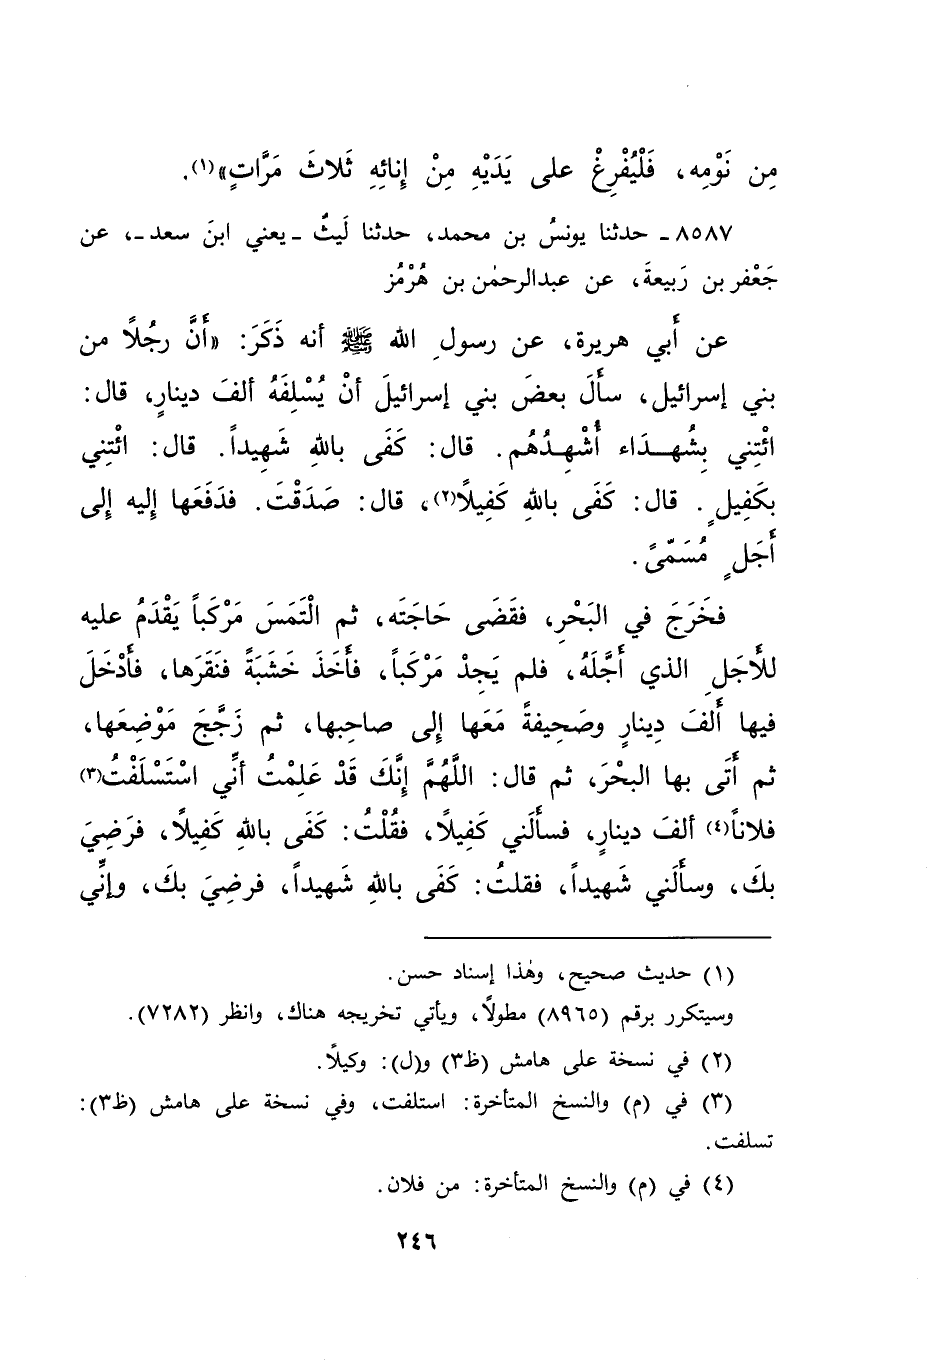 مِن نَوْمِه، فَلْيُفْرِغْ على يَدَيْهِ مِنْ إنائِهِ ثَلاثَ مَرَّاتٍ»(١).
٨٥٨٧ـ حدثنا يونسُ بن محمد، حدثنا لَيثٌ ـ يعني ابنَ سعد ـ، عن
جَعْفر بن رَبيعةَ، عن عبدالرحمٰن بن هُرْمُز
عن أَبي هريرة، عن رسولِ الله ﷺ أنه ذَكَرَ: «أَنَّ رجُلًا من
بني إسرائيل، سأَلَ بعضَ بني إسرائيلَ أنْ يُسْلِفَهُ ألفَ دينارٍ، قال:
ائْتِني بِشُهـداء أُشْهِـدُهُم. قال: كَفَى باللهِ شَهِيداً. قال: ائْتِني
بكَفِيلٍ. قال: كَفَى باللهِ كَفِيلًا(٢)، قال: صَدَقْتَ. فدَفَعَها إليه إلى
أَجَلٍ مُسَمّىً.
فخَرَجَ في البَحْرِ، فقَضَى حَاجَتَه، ثم الْتَمَسَ مَرْكَباً يَقْدَمُ عليه
للأَجَلِ الذي أَجَّلَهُ، فلم يَجِدْ مَرْكَباً، فأَخَذَ خَشَبَةً فنَقَرَها، فأَدْخَلَ
فيها أَلفَ دِينارٍ وصَحِيفةً مَعَها إلى صاحِبها، ثم زَجَّجَ مَوْضِعَها،
ثم أَتَى بها البحْرَ، ثم قال: اللَّهُمَّ إنَّكَ قَدْ عَلِمْتُ أنِّي اسْتَسْلَفْتُ(٣)
فلاناً(٤) ألفَ دينارٍ، فسألَني كَفِيلًا، فقُلْتُ: كَفَى باللهِ كَفِيلًا، فرَضِيَ
بكَ، وسألَني شَهيداً، فقلتُ: كَفَى باللهِ شَهيداً، فرضِيَ بكَ، وإنِّي
(١) حديث صحيح، وهٰذا إسناد حسن.
وسيتكرر برقم (٨٩٦٥) مطولًا، ويأتي تخريجه هناك، وانظر (٧٢٨٢).
(٢) في نسخة على هامش (ظ٣) و(ل): وكيلًا.
(٣) في (م) والنسخ المتأخرة: استلفت، وفي نسخة على هامش (ظ٣):
تسلفت.
(٤) في (م) والنسخ المتأخرة: من فلان.
٢٤٦